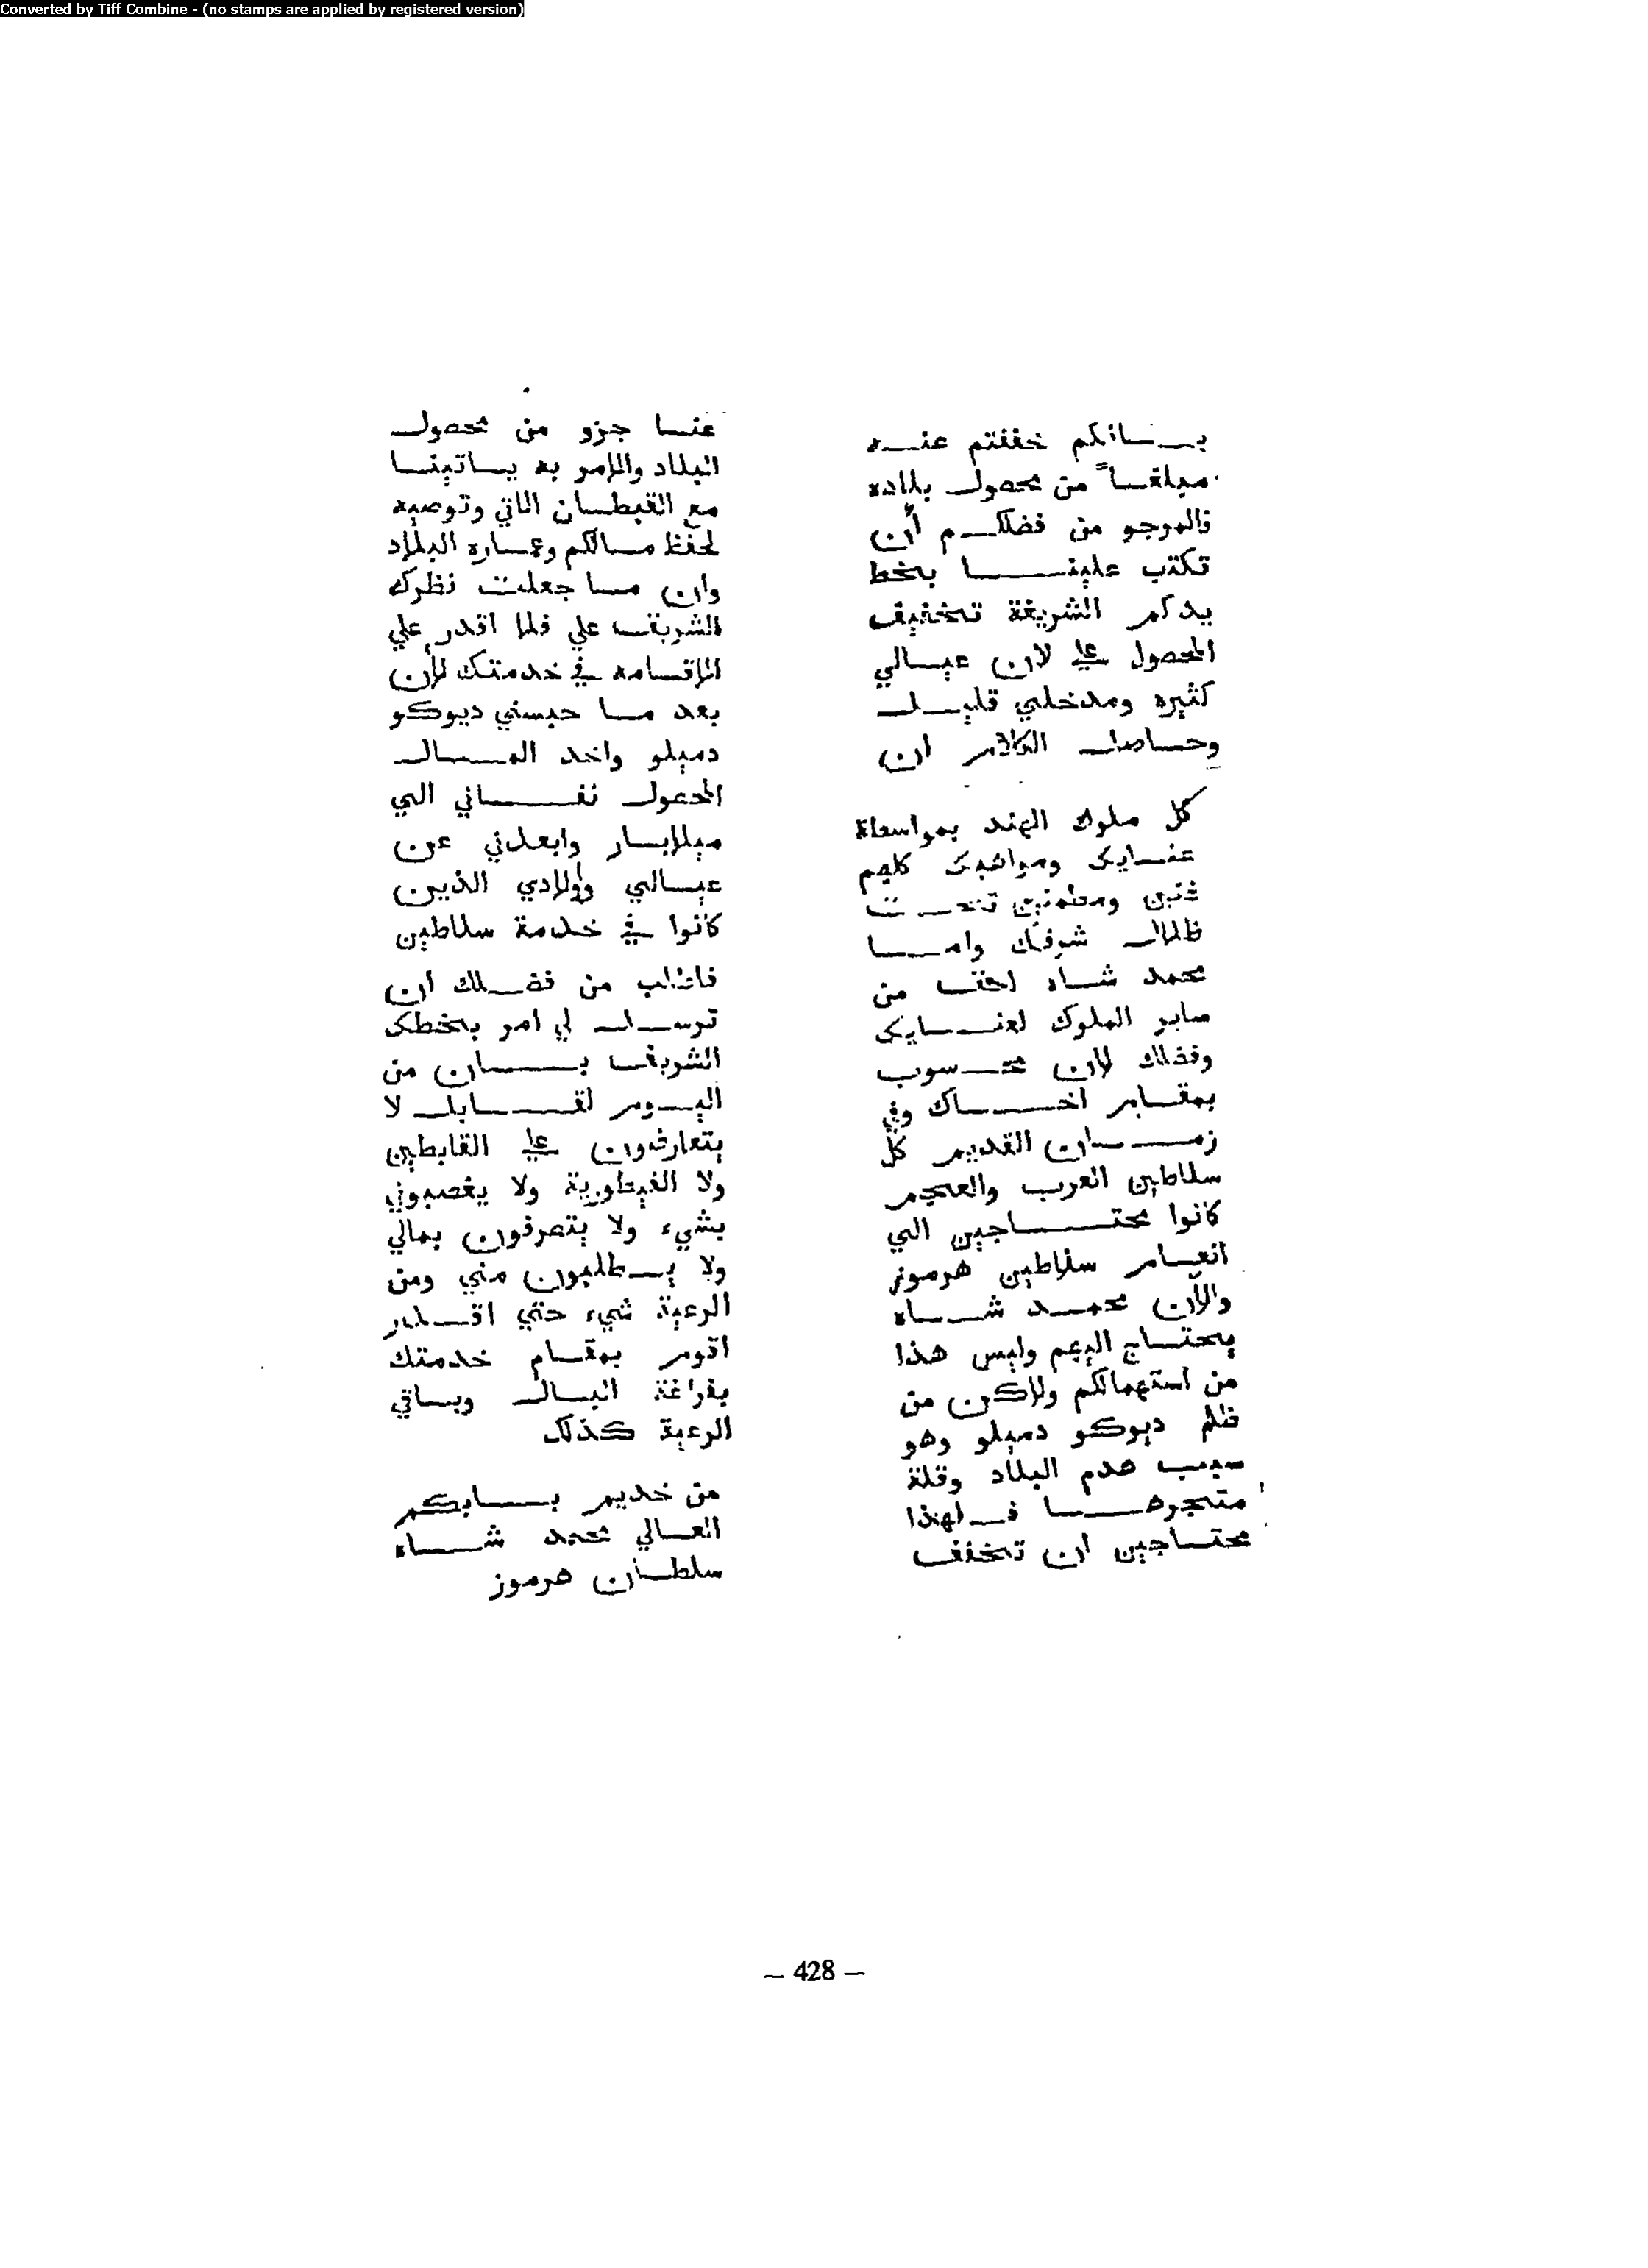 Converted by Tiff Combine - (no stamps are applied by registered version)
بـانكم خففتم عنـه
مبلغا من محصول بلاده
فالمرجو من فضلكم أن
تكتب علينـا بخط
يدكم الشريفة تخفيف
المحصول علي لان عيالي
كثيره ومدخلي قليـل
وحاصل الكلام ان
كل ملوك الهند بمواسطة
عنـايك ومواهبك كلهم
ومطمنين تحـت
ظلال شرفك وامـا
محمد شـاه احق من
ساير الملوك لعنـايك
وفضلك لان محـسوب
بمقـام اخـاك وفي
زمـان القديم كل
سلاطين العرب والعجم
كانوا محتـاجين الي
انعـام سلاطين هرموز
والآن محمـد شـاه
يحتـاج اليهم وليس هذا
من استهمالكم ولاكن من
ظلم ديوكو دميلو وهو
سبب هدم البلاد وقلة
متجرهـا فـلهذا
محتـاجين ان تخفف
عنـا جزو من محصول
البلاد والامر به يـاتينـا
مع القبطـان الاتي وتوصيه
لحفظ مـالكم وعمـاره البلاد
وان مـا جعلت نظرك
الشريف علي فلا اقدر علي
الاقـامه في خدمتك لأن
بعد مـا حبسني ديوكو
دميلو واخد المـال
المحصول نفـاني الي
ميلابـار وابعدني عن
عيـالي وأولادي الذين
كانوا في خدمة سلاطين
فاطلب من فضـلك ان
ترسـل لي امر بخطك
الشريف بـان من
اليـوم لقـابل لا
يتعارفون علي القابطين
ولا الفيطورية ولا يغصبوني
بشيء ولا يتعرفون بمالي
ولا يـطلبون مني ومن
الرعية شيء حتي اقـدر
اقوم بمقـام خدمتك
بفراغة البـال وبـاقي
الرعية كذلك
من خديم بـابكم
العـالي محمد شـاه
سلطـان هرموز
— 428 —